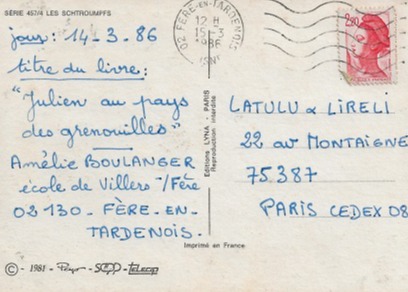 SÉRIE 457/4 LES SCHTROUMPFS
jour: 14-3-86
titre du livre:
"Julien au pays
des grenouilles"
Amélie BOULANGER
école de Villers-/Fère
02130 - FÈRE-EN-
TARDENOIS.
© - 1981 - Peyo - SEPP -
Editions LYNA - PARIS
Reproduction interdite
Imprimé en France
02 FÈRE-EN-TARDENOIS
12 H
15-3
1986
AISNE
2,20
LATULU & LIRELI
22 av MONTAIGNE
75387
PARIS CEDEX 08